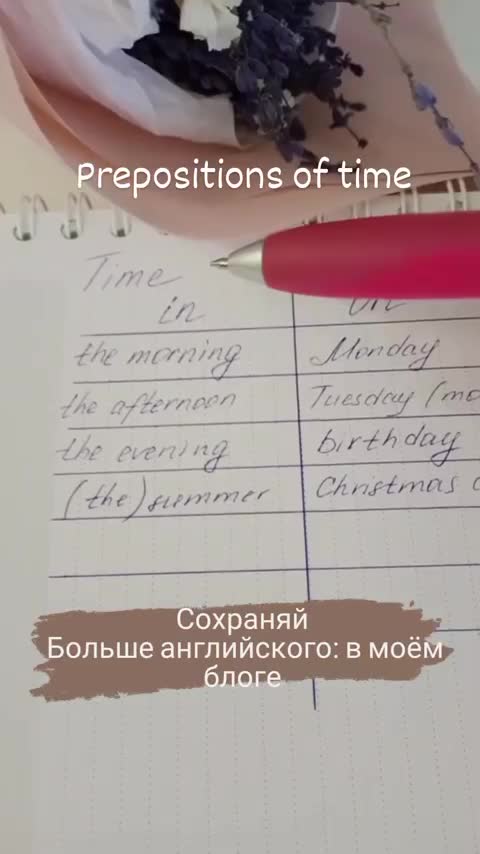 Prepositions of time
Time
in
on
the morning
Monday
the afternoon
Tuesday
the evening
birthday
(the) summer
Christmas
Сохраняй
Больше английского: в моём
блоге